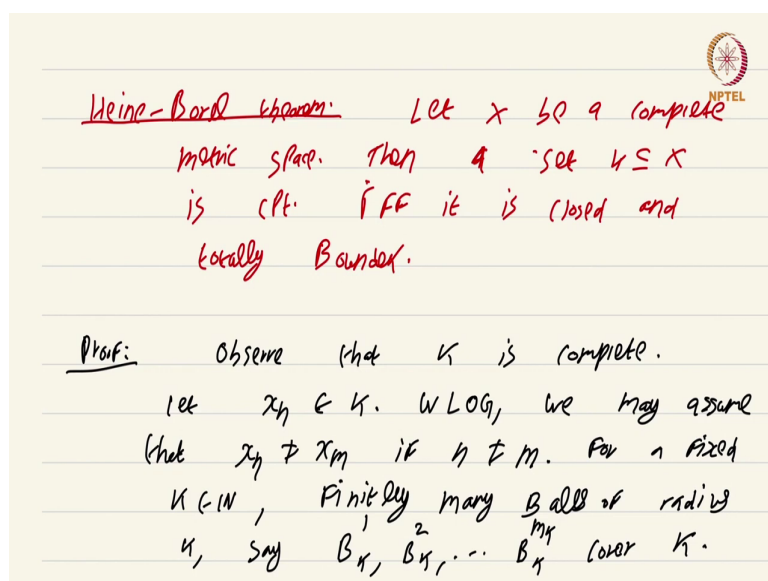 NPTEL
Heine-Borel theorem. Let X be a complete
metric space. Then a set K ⊆ X
is cpt. iFF it is closed and
totally Bounded.
Proof: Observe that K is complete.
let xₙ ∈ K. WLOG, we may assume
that xₙ ≠ xₘ if n ≠ m. For a fixed
K ∈ IN, Finitely many Balls of radius
K, say B_K^1, B_K^2, ... B_K^{m_K} cover K.